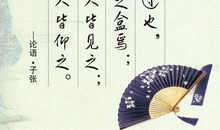 过也，
之食焉；
人皆见之；
人皆仰之。
—论语·子张